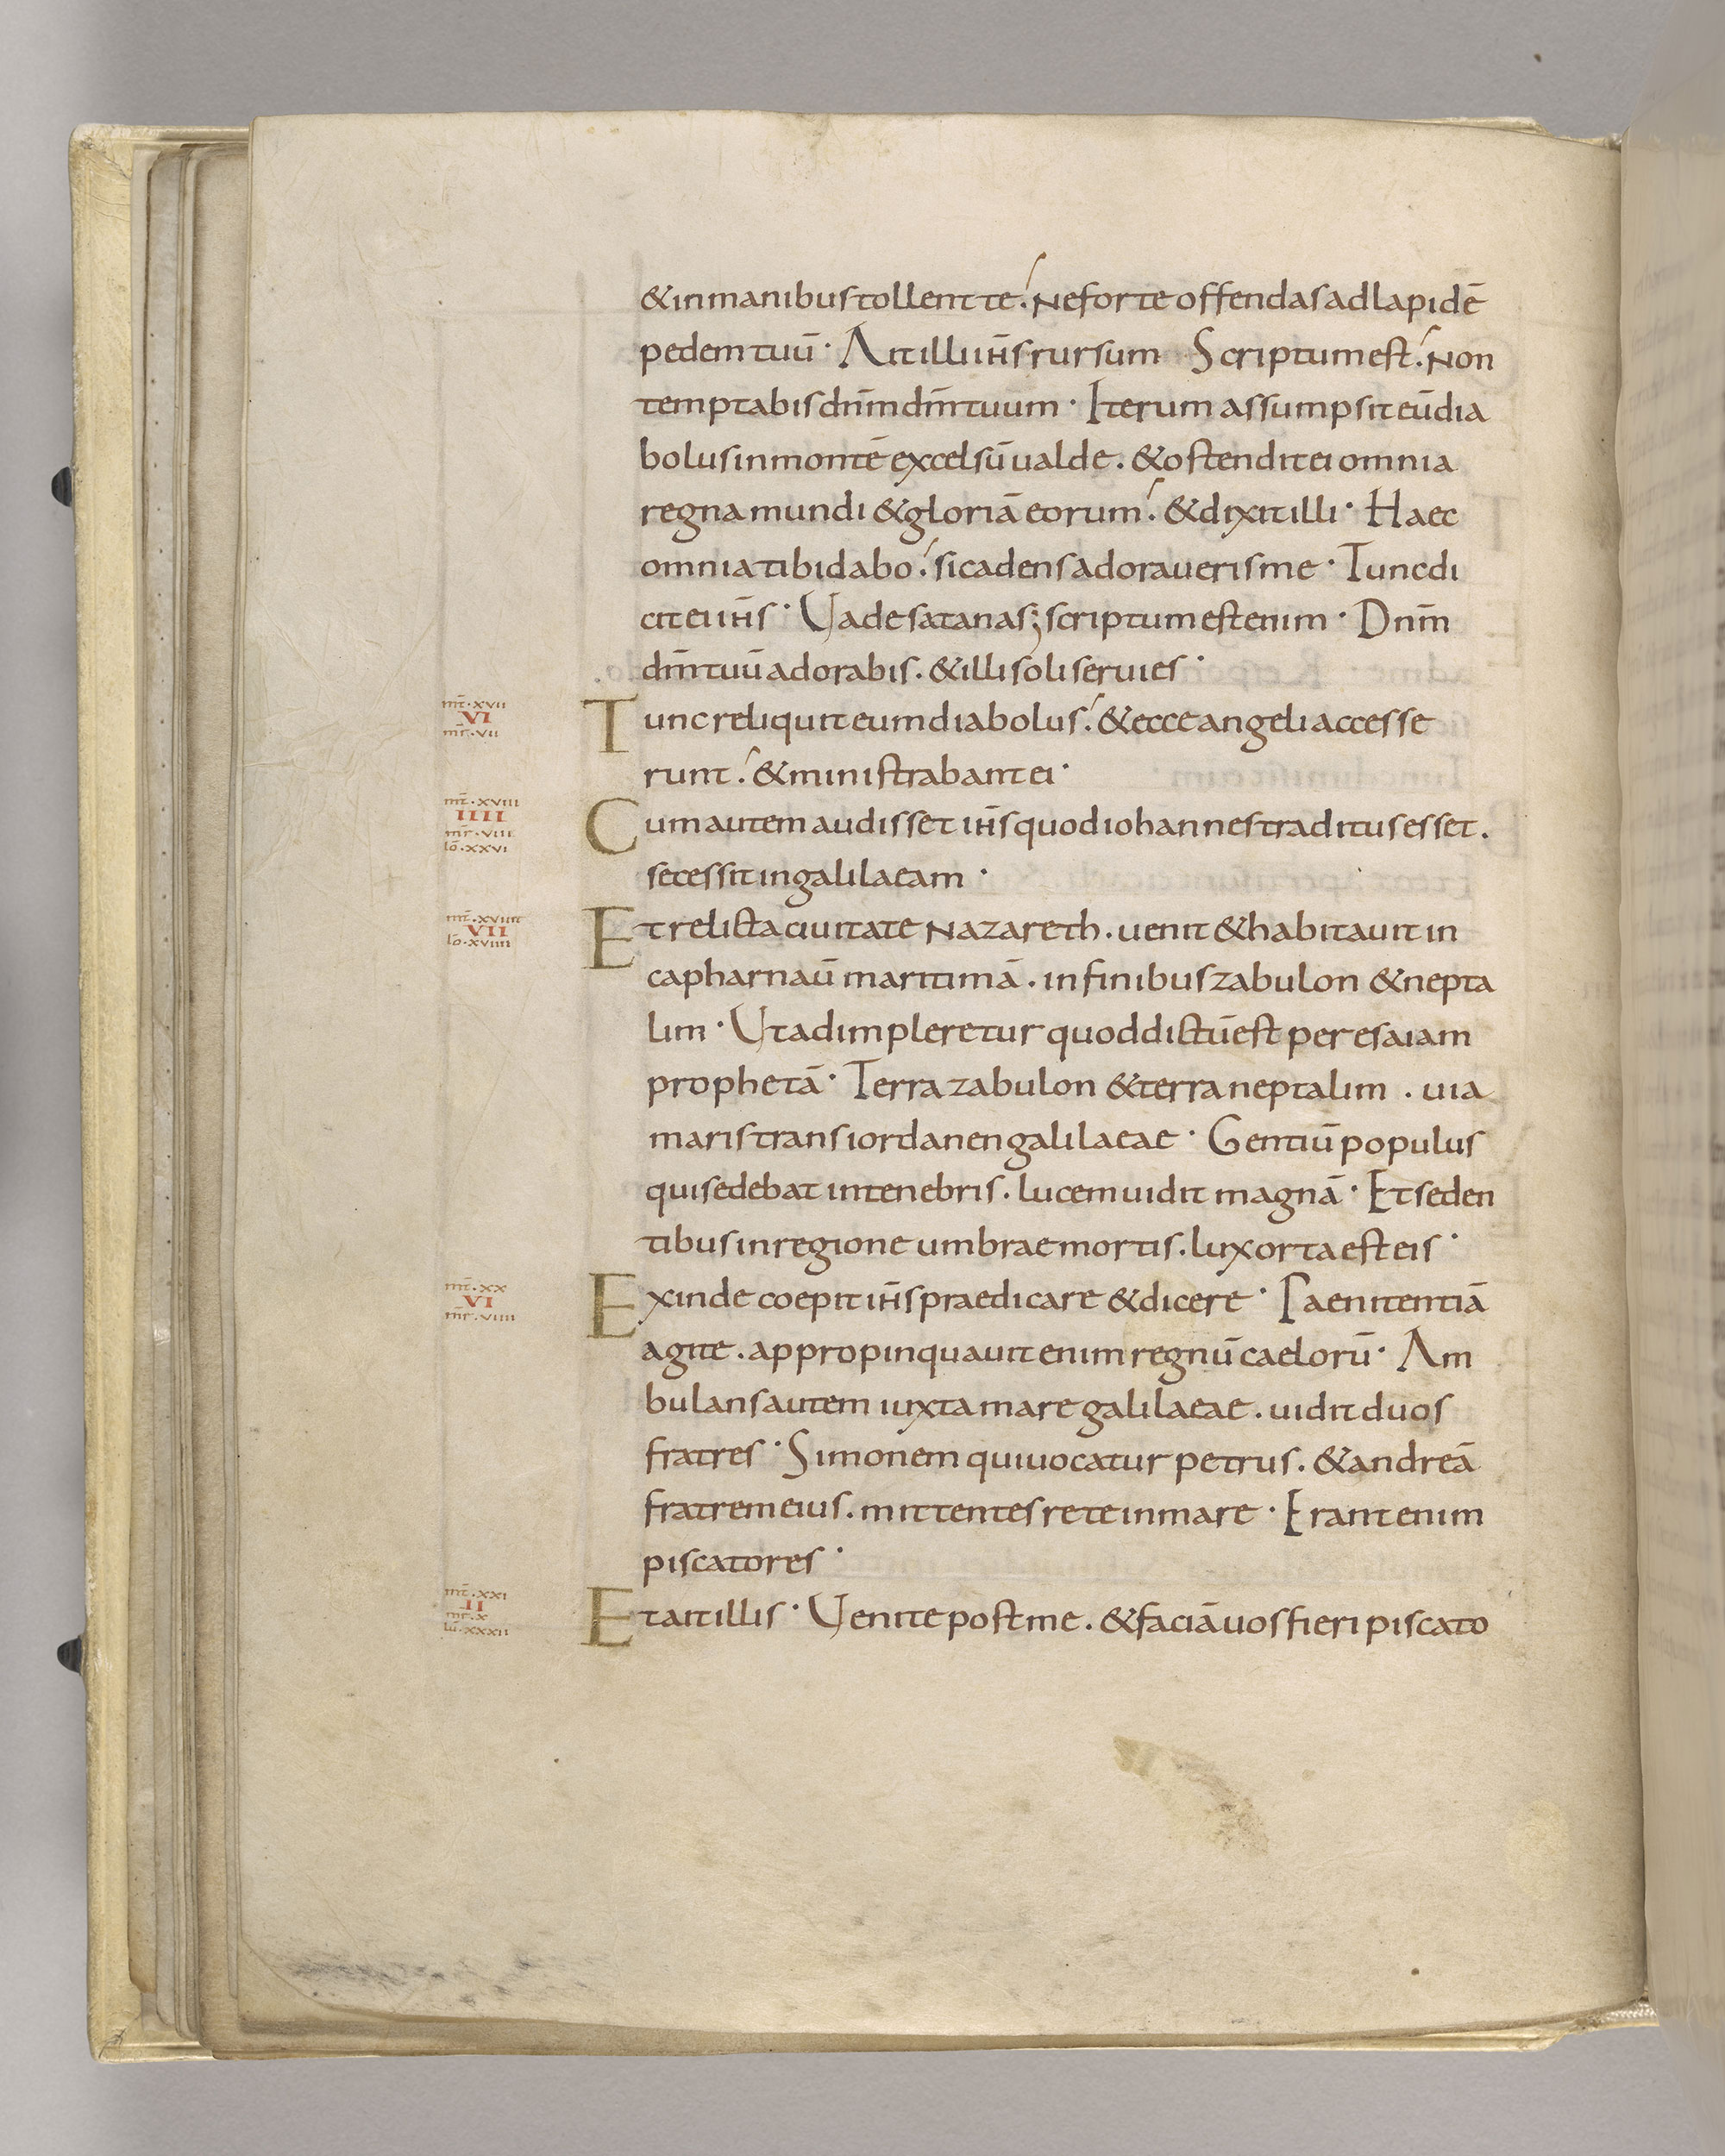 & in manibus tollent te. Ne forte offendas ad lapidē
pedem tuū · Ait illi ih̄s rursum Scriptum est. Non
temptabis dn̄m dm̄ tuum · Iterum assumpsit eū dia
bolus in montē excelsū ualde. & ostendit ei omnia
regna mundi & gloriā eorum. & dixit illi · Haec
omnia tibi dabo. si cadens adoraueris me · Tunc di
cit ei ih̄s · Uade satanas; scriptum est enim · Dn̄m
dm̄ tuū adorabis. & illi soli seruies ·
mt̄·xvii
VI
mr̄·vii
Tunc reliquit eum diabolus. & ecce angeli accesse
runt. & ministrabant ei ·
mt̄·xviii
IIII
mr̄·viii
lō·xxvi
Cum autem audisset ih̄s quod iohannes traditus esset.
secessit in galilaeam ·
mt̄·xviiii
VII
lō·xviiii
Et relicta ciuitate Nazareth. uenit & habitauit in
capharnaū maritimā. in finibus zabulon & nepta
lim · Ut adimpleretur quod dictū est per esaiam
prophetā · Terra zabulon & terra neptalim . uia
maris trans iordanen galilaeae · Gentiū populus
qui sedebat in tenebris. lucem uidit magnā · Et seden
tibus in regione umbrae mortis. lux orta est eis ·
mt̄·xx
VI
mr̄·viiii
Exinde coepit ih̄s praedicare & dicere · Paenitentiā
agite. appropinquauit enim regnū caelorū · Am
bulans autem iuxta mare galilaeae. uidit duos
fratres · Simonem qui uocatur petrus. & andreā
fratrem eius. mittentes rete in mare · Erant enim
piscatores ·
mt̄·xxi
II
mr̄·x
lū·xxxii
Et ait illis · Uenite post me. & faciā uos fieri piscato